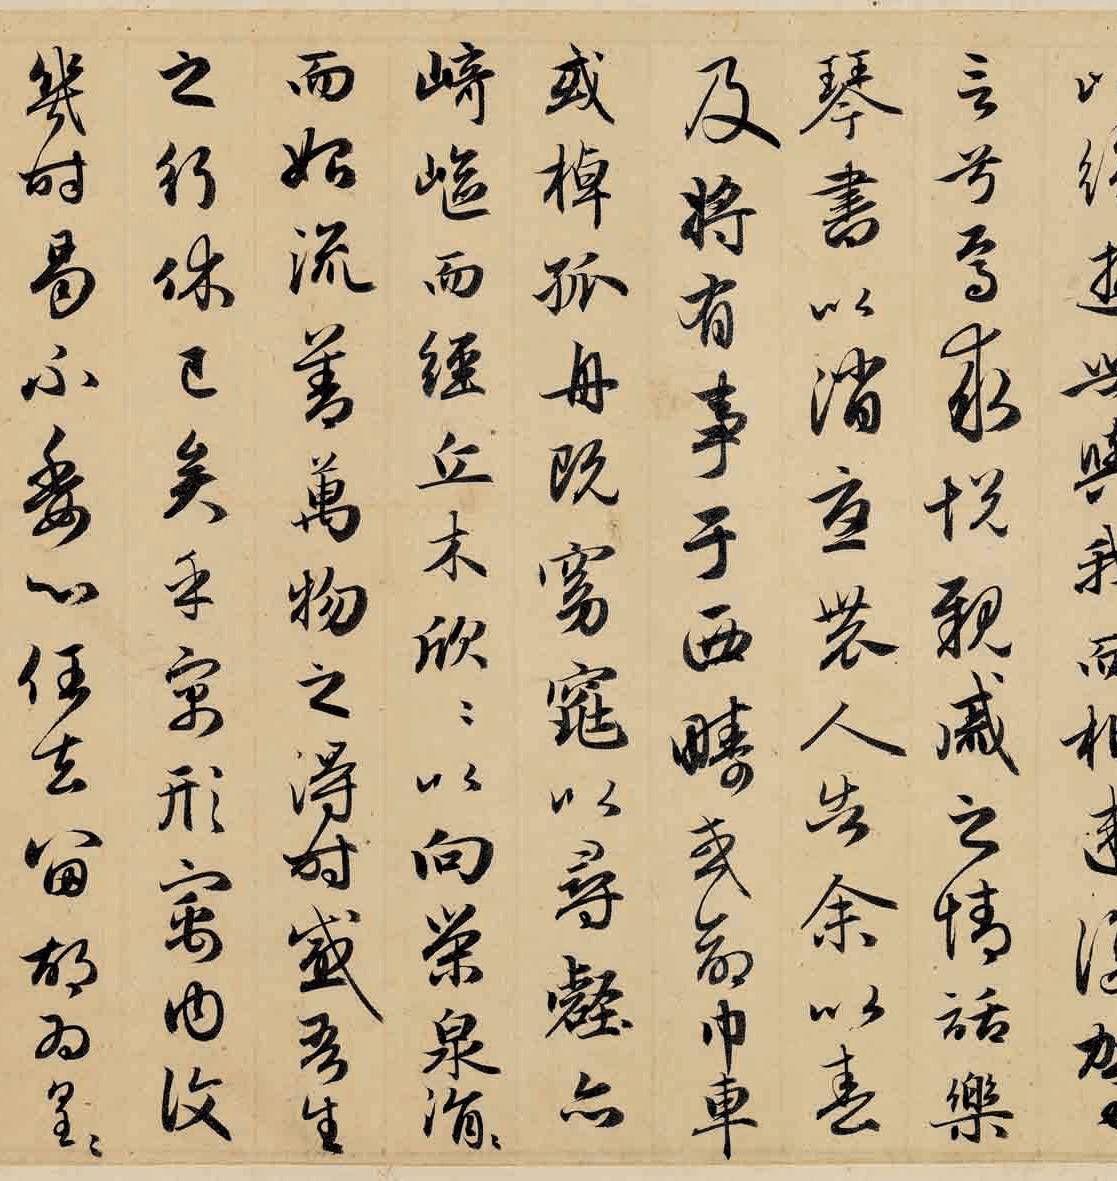 以絶遊世與我而相違復駕
言兮焉求悅親戚之情話樂
琴書以消憂農人告余以春
及將有事于西疇或命巾車
或棹孤舟既窈窕以尋壑亦
崎嶇而經丘木欣〻以向榮泉涓〻
而始流善萬物之得時感吾生
之行休已矣乎寓形寓内復
幾時曷不委心任去留胡為皇〻